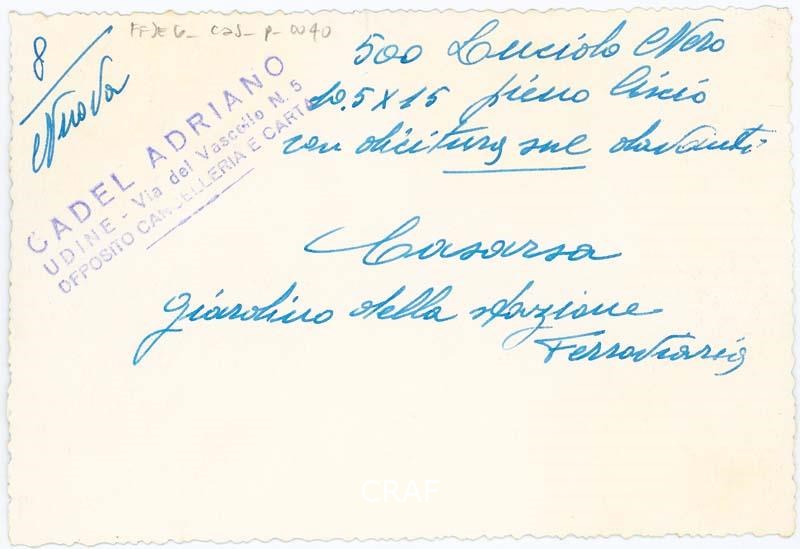 8
Nuova
500 Lucido Nero
10.5 x 15 pieno liscio
con dicitura sul davanti
CADEL ADRIANO
UDINE - Via del Vascello N. 5
DEPOSITO CANCELLERIA E CARTA
Casarsa
giardino della stazione
Ferroviaria
CRAF